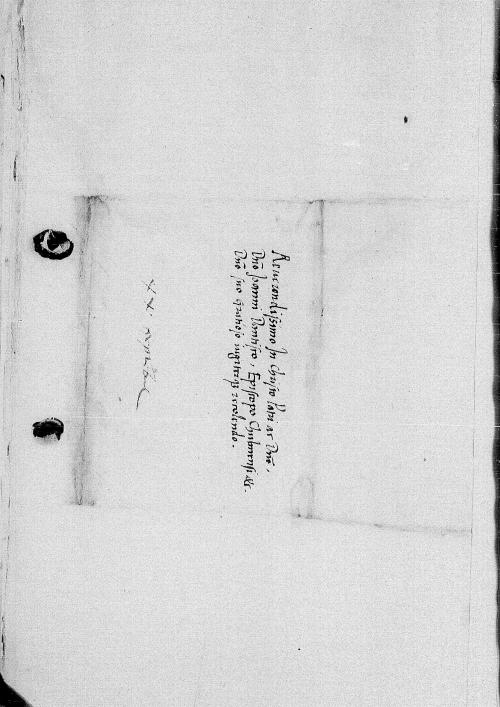 Reuerendissimo In Christo Patri ac Dno,
Dno Joanni Dantisco, Episcopo Chulmensi &c.
Dno suo gratioso iugiter colendo.